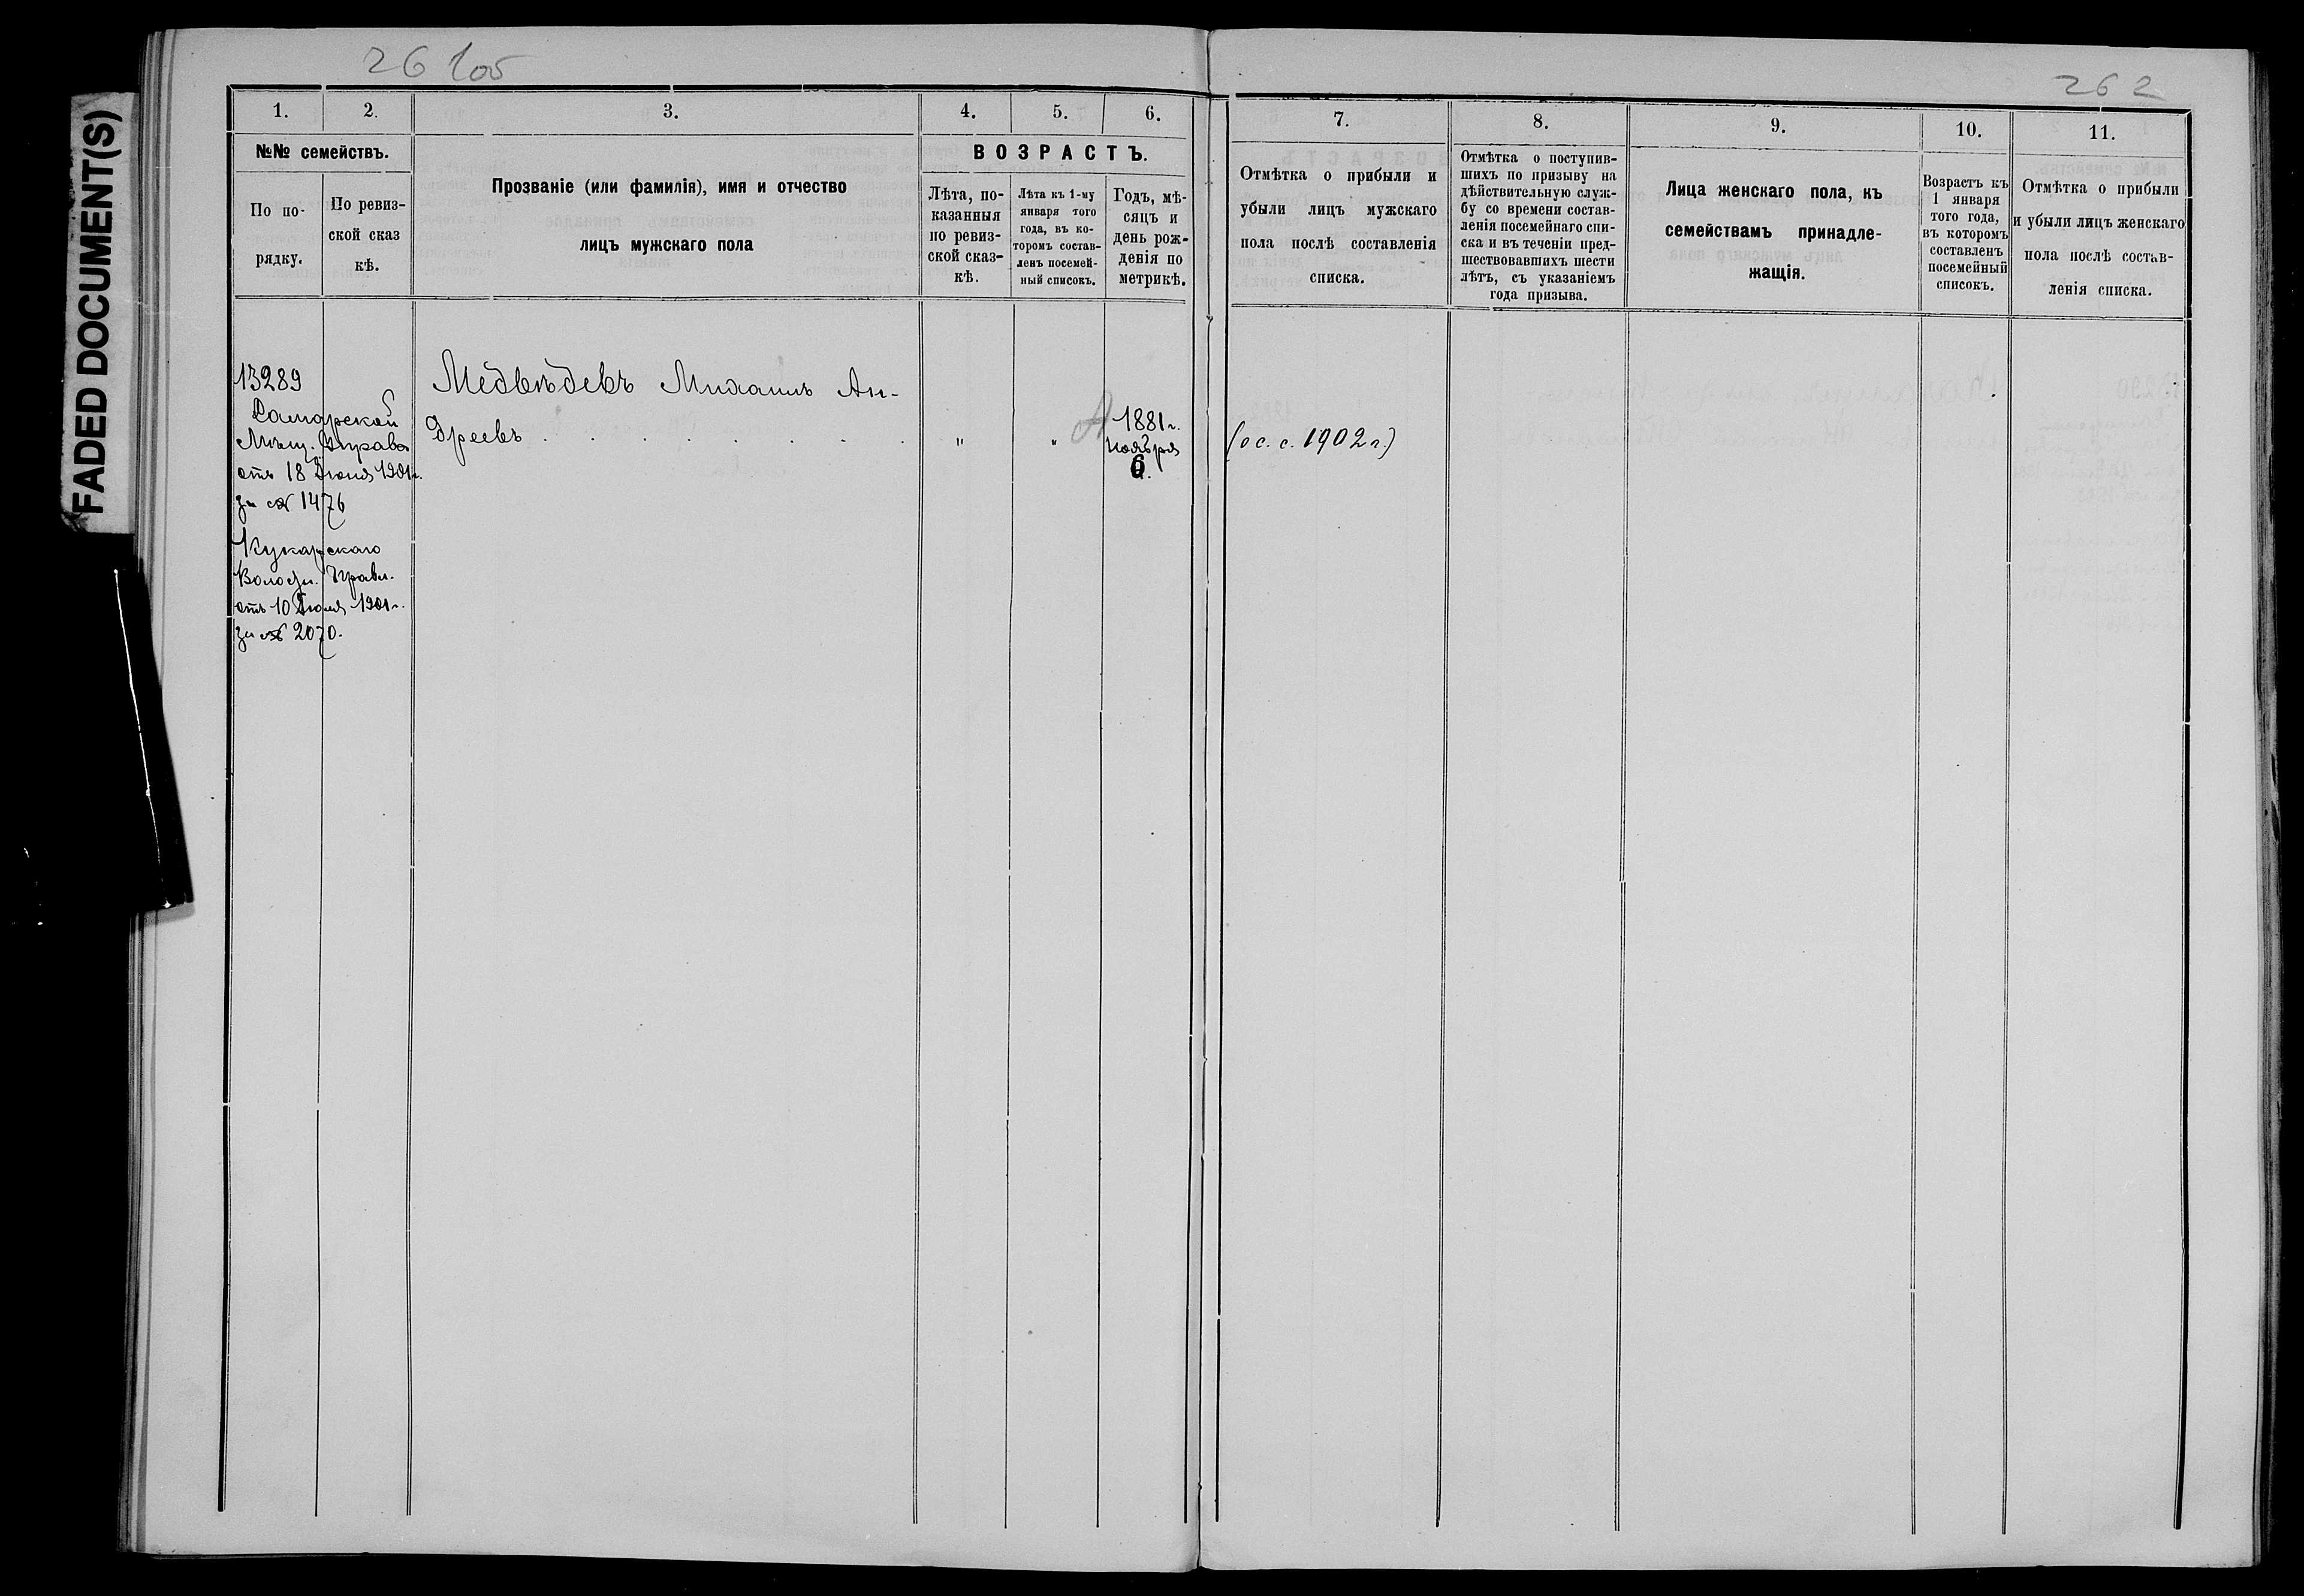 FADED DOCUMENT(S)
26 105
262
1. 2. 3. 4. 5. 6. 7. 8. 9. 10. 11.
№№ семействъ.
По по-
рядку.
По ревиз-
ской сказ
кѣ.
Прозваніе (или фамилія), имя и отчество
лицъ мужскаго пола
ВОЗРАСТЪ.
Лѣта, по-
казанныя
по ревиз-
ской сказ-
кѣ.
Лѣта къ 1-му
января того
года, въ ко-
торомъ состав-
ленъ посемей-
ный списокъ.
Годъ, мѣ-
сяцъ и
день рож-
денія по
метрикѣ.
Отмѣтка о прибыли и
убыли лицъ мужскаго
пола послѣ составленія
списка.
Отмѣтка о поступив-
шихъ по призыву на
дѣйствительную служ-
бу со времени состав-
ленія посемейнаго спи-
ска и въ теченіи пред-
шествовавшихъ шести
лѣтъ, съ указаніемъ
года призыва.
Лица женскаго пола, къ
семействамъ принадле-
жащія.
Возрастъ къ
1 января
того года,
въ которомъ
составленъ
посемейный
списокъ.
Отмѣтка о прибыли
и убыли лицъ женскаго
пола послѣ состав-
ленія списка.
13289
Самарской
Мѣщ. Управа
отъ 18 Іюня 1901г.
за № 1476
Кукарскаго
Волостн. Правл.
отъ 10 Іюля 1901г.
за № 2070.
Медвѣдевъ Михаилъ Ан-
дреевъ . . . . . . . . " "
1881г.
ноября
6.
(ос. с. 1902г.)